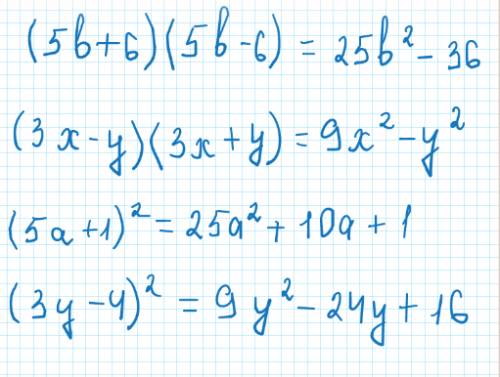 (5b+6)(5b-6) = 25b² - 36
(3x-y)(3x+y) = 9x² - y²
(5a+1)² = 25a² + 10a + 1
(3y-4)² = 9y² - 24y + 16